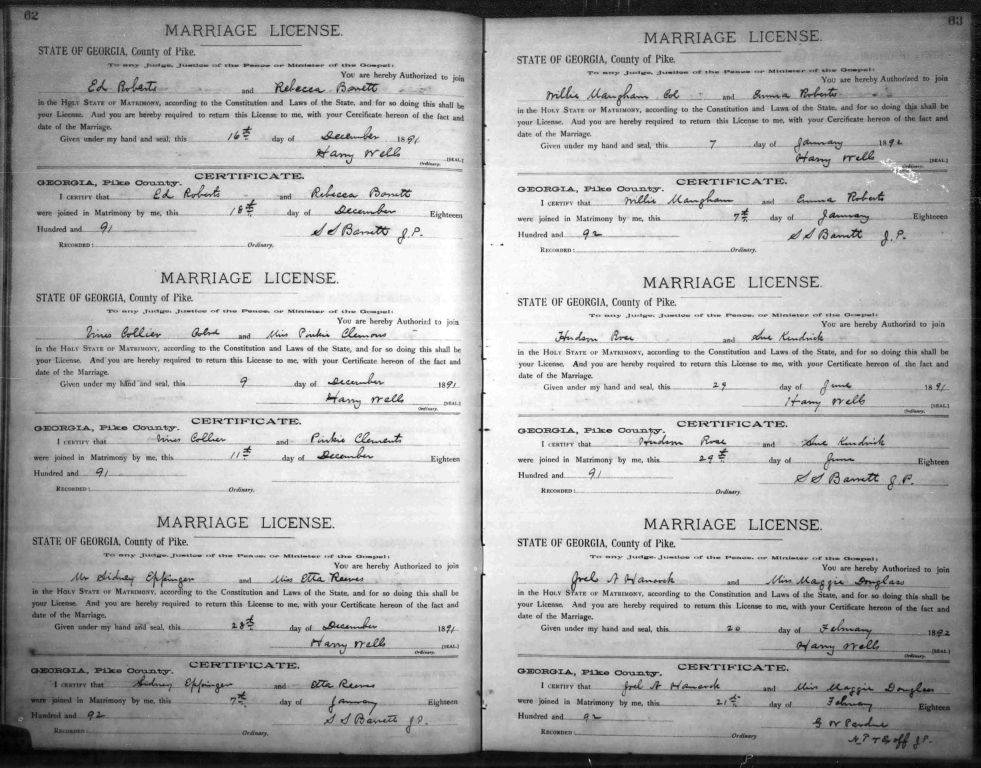 62
MARRIAGE LICENSE.
STATE OF GEORGIA, County of Pike.
To any Judge, Justice of the Peace or Minister of the Gospel:
You are hereby Authorized to join
Ed Roberts and Rebecca Barrett
in the HOLY STATE OF MATRIMONY, according to the Constitution and Laws of the State, and for so doing this shall be
your License. And you are hereby required to return this License to me, with your Certificate hereon of the fact and
date of the Marriage.
Given under my hand and seal, this 16th day of December 1891
Harry Wells [SEAL]
Ordinary.
CERTIFICATE.
GEORGIA, Pike County.
I CERTIFY that Ed Roberts and Rebecca Barrett
were joined in Matrimony by me, this 18th day of December Eighteen
Hundred and 91 S S Barrett J.P.
RECORDED: Ordinary.
MARRIAGE LICENSE.
STATE OF GEORGIA, County of Pike.
To any Judge, Justice of the Peace, or Minister of the Gospel:
You are hereby Authorized to join
Vines Collier and Miss Pinkie Clemons
in the HOLY STATE OF MATRIMONY, according to the Constitution and Laws of the State, and for so doing this shall be
your License. And you are hereby required to return this License to me, with your Certificate hereon of the fact and
date of the Marriage.
Given under my hand and seal, this 9 day of December 1891
Harry Wells [SEAL]
Ordinary.
CERTIFICATE.
GEORGIA, Pike County.
I CERTIFY that Vines Collier and Pinkie Clements
were joined in Matrimony by me, this 11th day of December Eighteen
Hundred and 91
RECORDED: Ordinary.
MARRIAGE LICENSE.
STATE OF GEORGIA, County of Pike.
To any Judge, Justice of the Peace, or Minister of the Gospel:
You are hereby Authorized to join
Mr Sidney Eppinger and Miss Etta Reeves
in the HOLY STATE OF MATRIMONY, according to the Constitution and Laws of the State, and for so doing this shall be
your License. And you are hereby required to return this License to me, with your Certificate hereon of the fact and
date of the Marriage.
Given under my hand and seal, this 28th day of December 1891
Harry Wells [SEAL]
Ordinary.
CERTIFICATE.
GEORGIA, Pike County.
I CERTIFY that Sidney Eppinger and Etta Reeves
were joined in Matrimony by me, this 7th day of January Eighteen
Hundred and 92 S S Barrett J.P.
RECORDED: Ordinary.
63
MARRIAGE LICENSE.
STATE OF GEORGIA, County of Pike.
To any Judge, Justice of the Peace or Minister of the Gospel:
You are hereby Authorized to join
Willie Maugham Col and Emma Roberts
in the HOLY STATE OF MATRIMONY, according to the Constitution and Laws of the State, and for so doing this shall be
your License. And you are hereby required to return this License to me, with your Certificate hereon of the fact and
date of the Marriage.
Given under my hand and seal, this 7 day of January 1892
Harry Wells [SEAL]
Ordinary.
CERTIFICATE.
GEORGIA, Pike County.
I CERTIFY that Willie Maugham and Emma Roberts
were joined in Matrimony by me, this 7th day of January Eighteen
Hundred and 92 S S Barrett J.P.
RECORDED: Ordinary.
MARRIAGE LICENSE.
STATE OF GEORGIA, County of Pike.
To any Judge, Justice of the Peace, or Minister of the Gospel:
You are hereby Authorized to join
Hudson Rose and Sue Kendrick
in the HOLY STATE OF MATRIMONY, according to the Constitution and Laws of the State, and for so doing this shall be
your License. And you are hereby required to return this License to me, with your Certificate hereon of the fact and
date of the Marriage.
Given under my hand and seal, this 29 day of June 1891
Harry Wells [SEAL]
Ordinary.
CERTIFICATE.
GEORGIA, Pike County.
I CERTIFY that Hudson Rose and Sue Kendrick
were joined in Matrimony by me, this 29th day of June Eighteen
Hundred and 91 S S Barrett J.P.
RECORDED: Ordinary.
MARRIAGE LICENSE.
STATE OF GEORGIA, County of Pike.
To any Judge, Justice of the Peace, or Minister of the Gospel:
You are hereby Authorized to join
Joel A Hancock and Miss Maggie Douglass
in the HOLY STATE OF MATRIMONY, according to the Constitution and Laws of the State, and for so doing this shall be
your License. And you are hereby required to return this License to me, with your Certificate hereon of the fact and
date of the Marriage.
Given under my hand and seal, this 20 day of February 1892
Harry Wells [SEAL]
Ordinary.
CERTIFICATE.
GEORGIA, Pike County.
I CERTIFY that Joel A Hancock and Miss Maggie Douglass
were joined in Matrimony by me, this 21st day of February Eighteen
Hundred and 92 G W Perdue
RECORDED: Ordinary J.P.